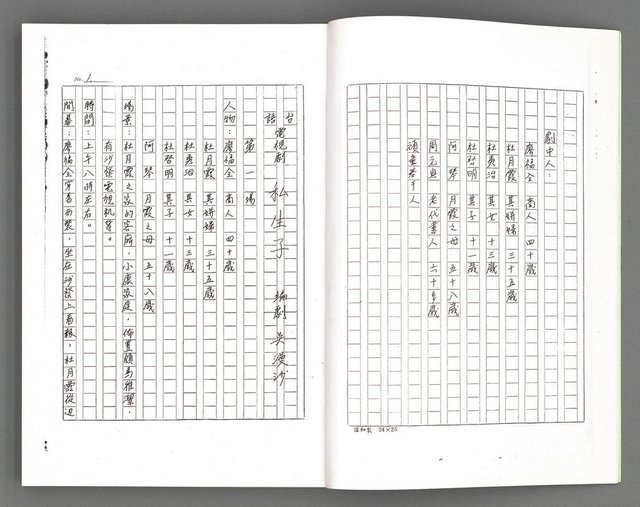 劇中人：
廖福全 商人 四十歲
杜月霞 其姘婦 三十五歲
杜美治 其女 十三歲
杜啓明 其子 十一歲
阿琴 月霞之母 五十八歲
周元貞 老代書人 六十多歲
頑童若干人
信和製 24×25
No. 1.
台語電視劇 私生子 編劇 吳漫沙
第一場
人物：廖福全 商人 四十歲
杜月霞 其姘婦 三十五歲
杜美治 其女 十三歲
杜啓明 其子 十一歲
阿琴 月霞之母 五十八歲
場景：杜月霞之家的客廳，小康家庭，佈置頗為雅潔，
有沙發電視机等。
時間：上午八時左右。
開幕：廖福全穿着西裝，坐在沙發上看報，杜月霞從边